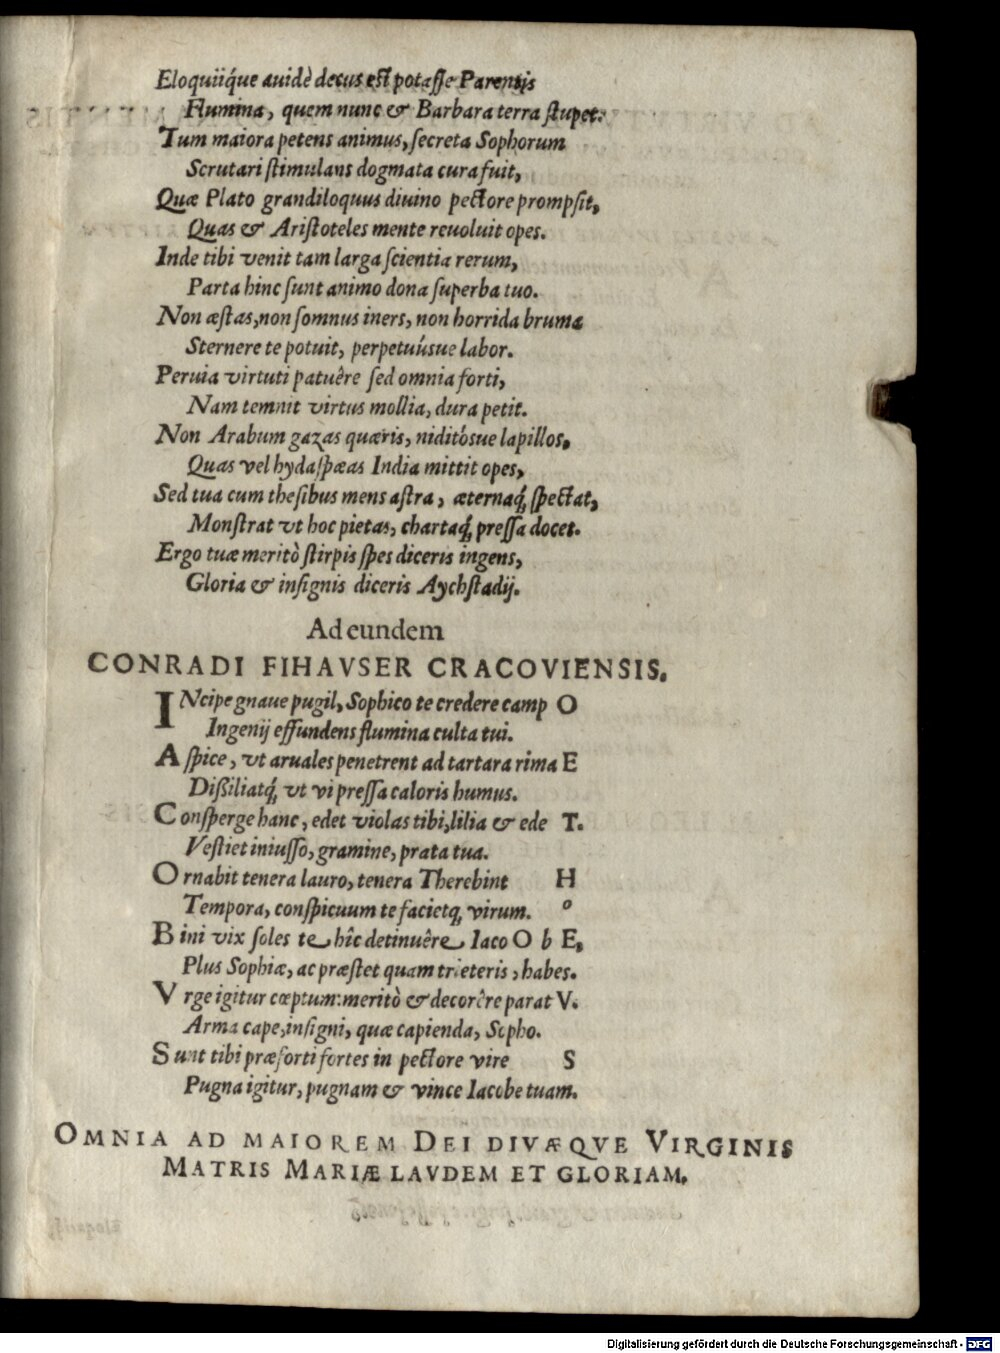 Eloquiiq́ue auidè decus est potasse Parentis
Flumina, quem nunc & Barbara terra stupet.
Tum maiora petens animus, secreta Sophorum
Scrutari stimulans dogmata cura fuit,
Quæ Plato grandiloquus diuino pectore prompsit,
Quas & Aristoteles mente reuoluit opes.
Inde tibi venit tam larga scientia rerum,
Parta hinc sunt animo dona superba tuo.
Non æstas, non somnus iners, non horrida bruma
Sternere te potuit, perpetuúsue labor.
Peruia virtuti patuêre sed omnia forti,
Nam temnit virtus mollia, dura petit.
Non Arabum gazas quæris, niditósue lapillos,
Quas vel hydaspæas India mittit opes,
Sed tua cum thesibus mens astra, æternaq́; spectat,
Monstrat vt hoc pietas, chartaq́; pressa docet.
Ergo tuæ meritò stirpis spes diceris ingens,
Gloria & insignis diceris Aychstadij.
Ad eundem
CONRADI FIHAVSER CRACOVIENSIS.
INcipe gnaue pugil, Sophico te credere camp O
Ingenij effundens flumina culta tui.
A spice, vt aruales penetrent ad tartara rima E
Dißiliatq́; vt vi pressa caloris humus.
C onsperge hanc, edet violas tibi, lilia & ede T.
Vestiet iniusso, gramine, prata tua.
O rnabit tenera lauro, tenera Therebint H
Tempora, conspicuum te facietq; virum. o
B ini vix soles te hîc detinuêre Iaco O b E,
Plus Sophiæ, ac præstet quam trieteris, habes.
V rge igitur cœptum: meritò & decorêre parat V.
Arma cape, insigni, quæ capienda, Sopho.
S unt tibi præforti fortes in pectore vire S
Pugna igitur, pugnam & vince Iacobe tuam.
OMNIA AD MAIOREM DEI DIVÆQVE VIRGINIS
MATRIS MARIÆ LAVDEM ET GLORIAM.
Digitalisierung gefördert durch die Deutsche Forschungsgemeinschaft - DFG